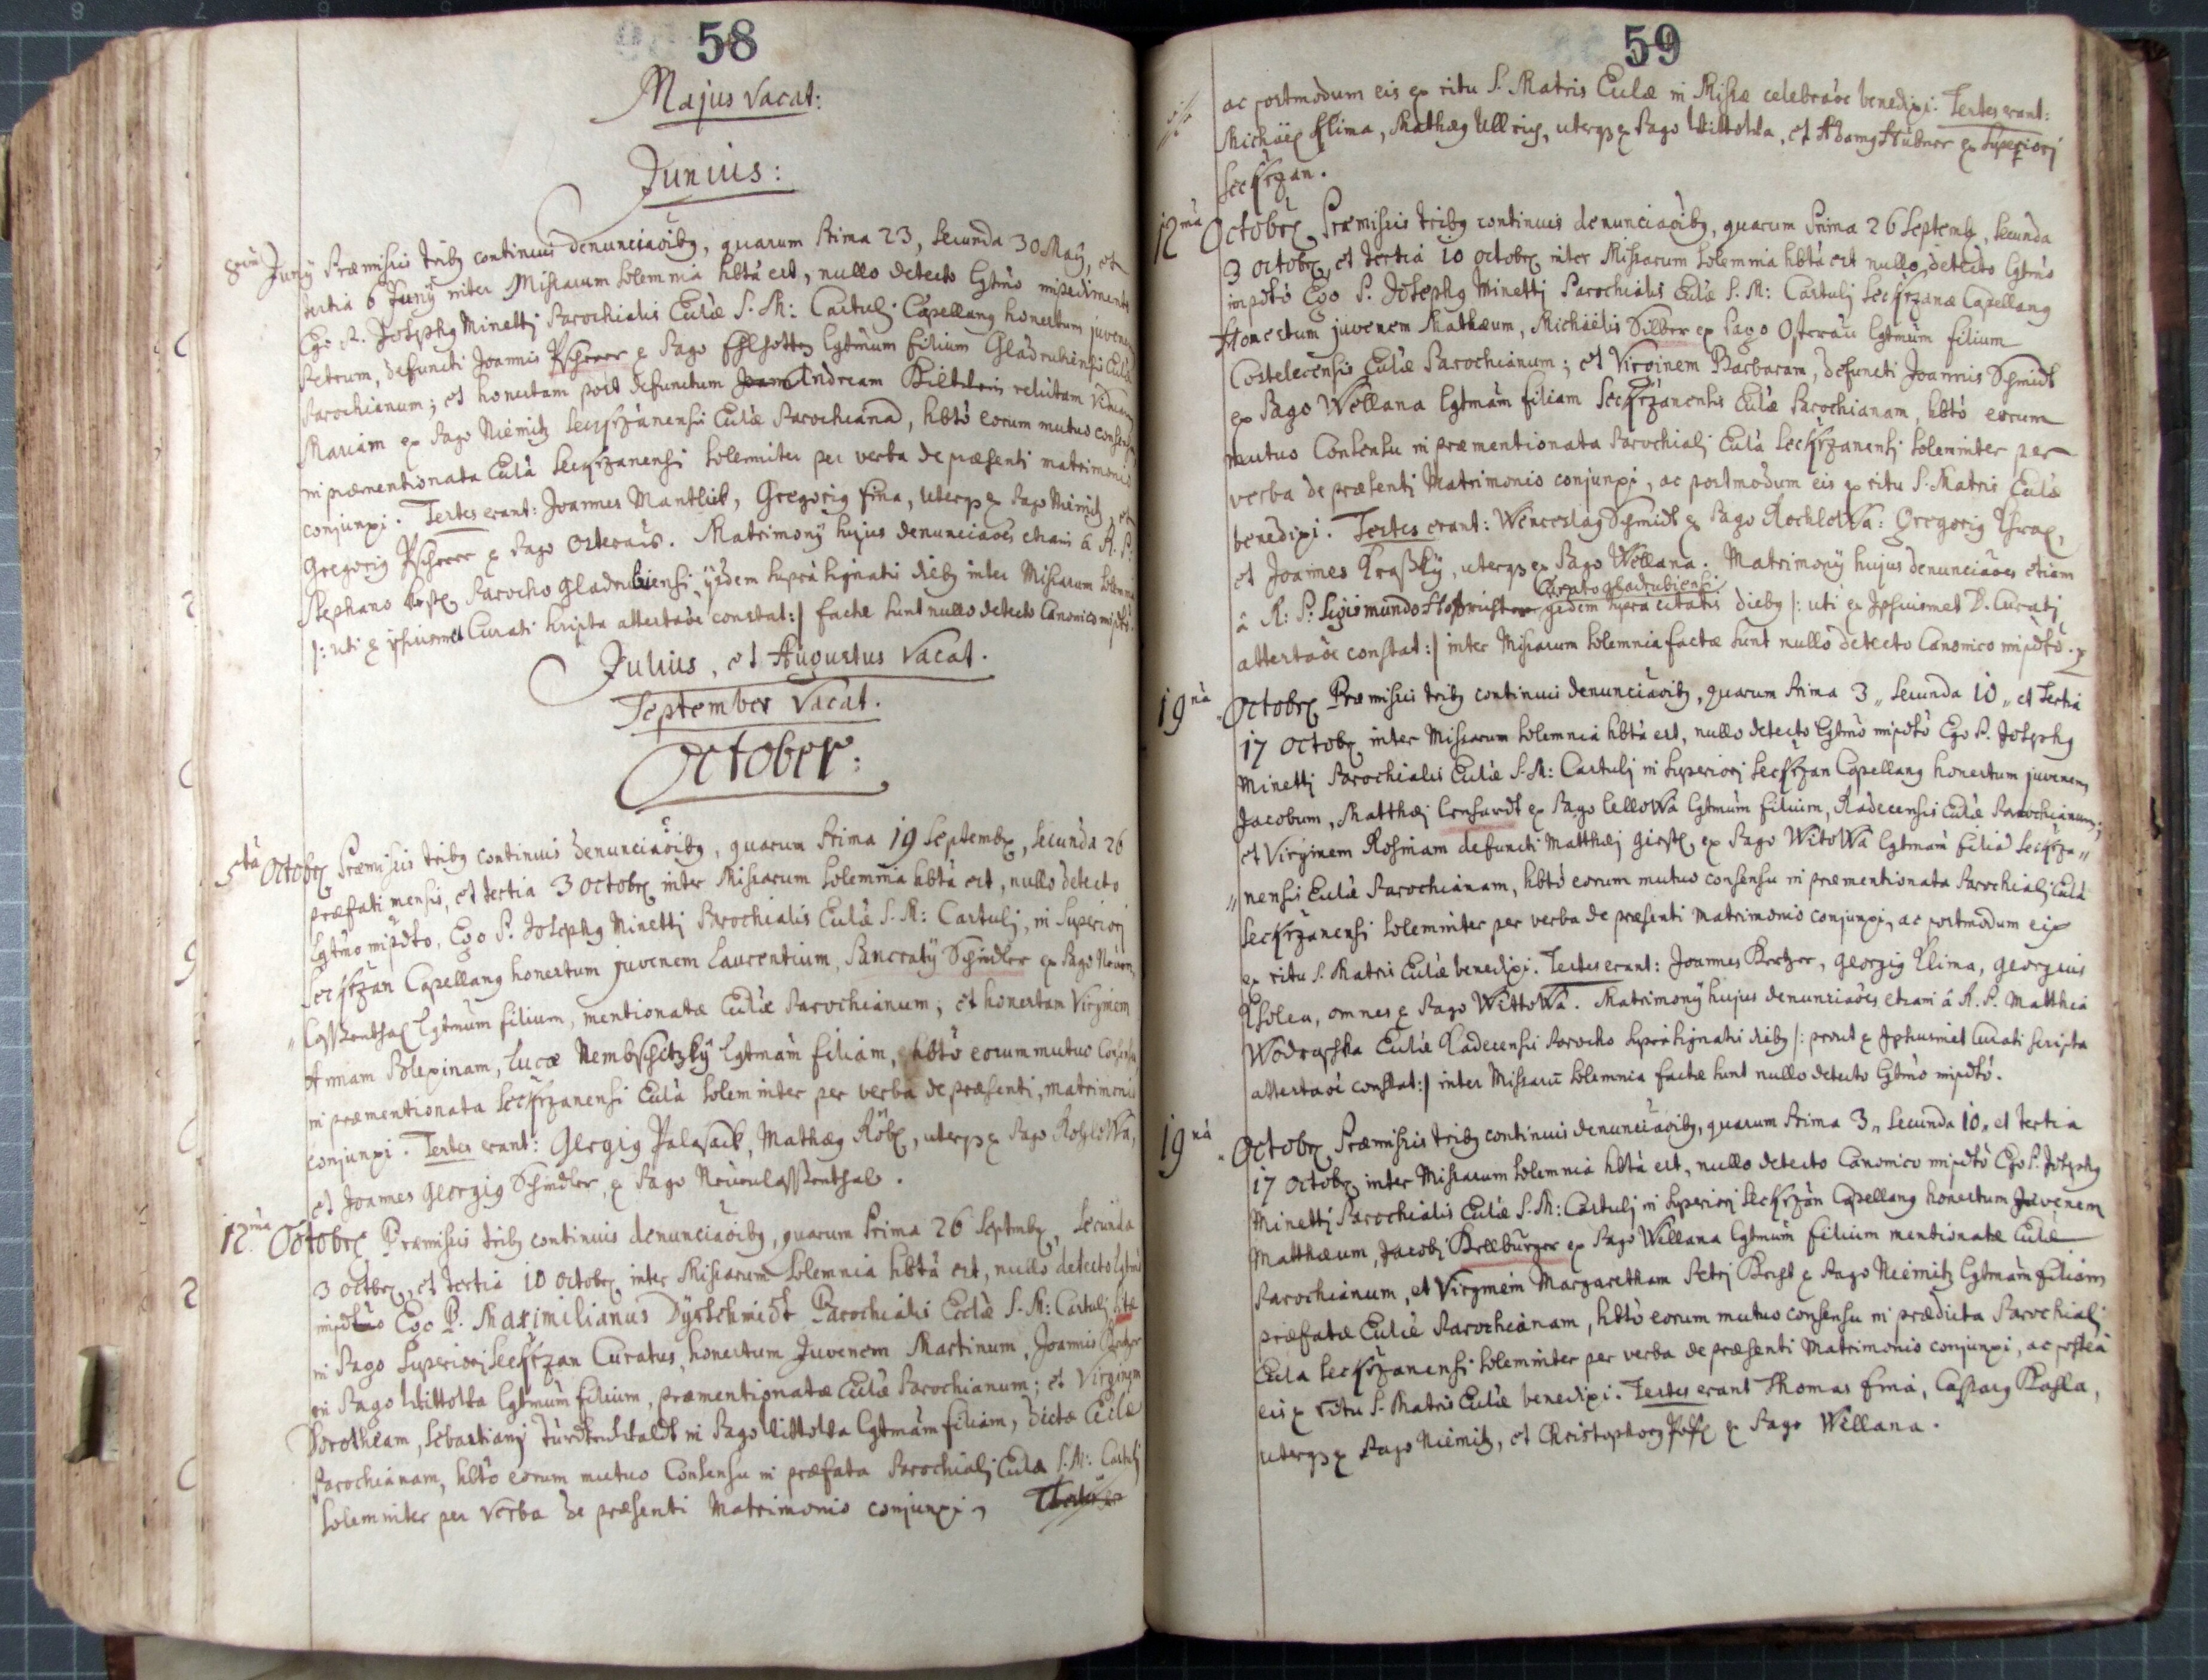 58
Majus Vacat:
Junius:
Junÿ Præmissis tribq continuis denunciaõibq, quarum Prima 23, Secunda 30 Maÿ, et
tertia 6 Junÿ inter Missarum Solemnia hbta est, nullo detecto lgtmo impedimento
Ego P. Josephq Minettj Parochialis Eulæ S. M: Castulj Capellanq honestum juvenem
Petrum, defuncti Joannis Pscherer e Pago lgtmum filium Gladrubiensis Eulæ
Parochianum; et honestam post defunctum Andream relictam Viduam
Mariam ex Pago Niemitz Seckrzanensis Eulæ Parochianā, hbto eorum mutuo consensu
in præmentionata Eula Seckrzanensi solemniter per verba de præsenti matrimonio
conjunxi. Testes erant: Joannes Mantlick, Gregoriq fina, uterqз e Pago Niemitz, et
Gregoriq Pscherer e Pago Osterau. Matrimonÿ hujus denunciaões etiam â R. P.
Stephano Parocho Gladrubiensi ÿsdem supra signatis diebq inter Missarum Solemnia
/: uti e ipsiusmet Curati scripta attestaõe constat:/ factæ sunt nullo detecto Canonico impdto.
Julius, et Augustus Vacat.
September Vacat.
October:
5ta Octobr Præmissis tribq continuis denunciaõibq, quarum Prima 19 Septembr, Secunda 26
præfati mensis, et tertia 3 Octobr inter Missarum Solemnia hbta est, nullo detecto
lgtmo impdto, Ego P. Josephq Minettj Parochialis Eulæ S. M: Castulj, in Superiorj
Seckrzan Capellanq honestum juvenem Laurentium, Pancratÿ Schindler ex Pago Neuen
lgtmum filium, mentionatæ Eulæ Parochianum; et honestam Virginem
Annam Polexinam, Lucæ Nembschitzkÿ lgtmam filiam, hbto eorum mutuo Consensu
in præmentionata Seckrzanensi Eula solemniter per verba de præsenti, matrimonio
conjunxi. Testes erant: Georgiq Palasack, Mathæq Röbl, uterqз e Pago
et Joannes Georgiq Schindler, e Pago
12ma Octobr Præmissis tribq continuis denunciaõibq, quarum Prima 26 Septembr, Secunda
3 Octobr, et tertia 10 Octobr inter Missarum Solemnia hbta est, nullo detecto lgtmo
impdto Ego P. Maximilianus Dÿrschmidt Parochialis Eclæ S. M: Castulj
in Pago Superiorj Seckrzan Curatus, honestum Juvenem Martinum, Joannis
in Pago Wittowa lgtmum filium, præmentionatæ Eulæ Parochianum; et Virginem
Dorotheam, Sebastianj in Pago Wittowa lgtmam filiam, dictæ Eclæ
Parochianam, hbto eorum mutuo Consensu in præfata Parochialj Eula S. M: Castulj
solemniter per verba de præsenti Matrimonio conjunxi,
59
ac postmodum eis ex ritu S. Matris Eulæ in Missæ celebraõe benedixi. Testes erant:
Michäel Klima, Mathæq Ullrich, uterqз e Pago Wittowa, et Adamq Hübner ex Superiorj
Seckrzan.
12ma Octobr Præmissis tribq continuis denunciaõibq, quarum Prima 26 Septembr, Secunda
3 Octobr, et tertia 10 Octobr inter Missarum Solemnia hbta est nullo detecto lgtmo
impdto Ego P. Josephq Minettj Parochialis Eulæ S. M: Castulj Seckrzanæ Capellanq
Honestum juvenem Mathæum, Michaëlis Silber ex Pago Osterau lgtmum filium
Costelecensis Eulæ Parochianum; et Virginem Barbaram, defuncti Joannis Schmidt
ex Pago Wellana lgtmam filiam Seckrzanensis Eulæ Parochianam, hbto eorum
mutuo Consensu in præmentionata Parochialj Eula Seckrzanensj solemniter per
verba de præsentj Matrimonio conjunxi, ac postmodum eis ex ritu S. Matris Eulæ
benedixi. Testes erant: Wenceslaq Schmidt e Pago Rochlowa: Gregoriq
et Joannes Kraßkÿ, uterqз ex Pago Wellana. Matrimonÿ hujus denunciaões etiam
Curato Gladrubiensi
â R: P. Sigismundo ÿsdem supra citatis diebq /: uti ex Ipsiusmet D. Curatj
attestaõe constat:/ inter Missarum Solemnia factæ sunt nullo detecto Canonico impdto.
19na Octobr Præmissis tribq continuis denunciaõibq, quarum Prima 3„ Secunda 10„ et tertia
17 Octobr inter Missarum Solemnia hbta est, nullo detecto lgtmo impdto Ego P. Josephq
Minettj Parochialis Eulæ S. M: Castulj in Superiorj Seckrzan Capellanq honestum juvenem
Jacobum, Matthæj Lenhardt ex Pago Lellowa lgtmum filium, Radecensis Eulæ Parochianum;
et Virginem Rosinam defuncti Matthæj Girstl, ex Pago Witowa lgtmam filiā Seckrza„
„nensis Eulæ Parochianam, hbto eorum mutuo consensu in præmentionata Parochialj Eula
Seckrzanensi solemniter per verba de præsenti Matrimonio conjunxi, ac postmodum eis
ex ritu S. Matris Eulæ benedixi. Testes erant: Joannes Kretzer, Georgiq Klima, Georgius
omnes e Pago Wittowa. Matrimonÿ hujus denunciaões etiam â R. P. Matthia
Wodraschka Eulæ Radecensis Parocho supra signatis diebq /: prout e Ipsiusmet Curati scripta
attestaõe constat:/ inter Missarū Solemnia factæ sunt nullo detecto lgtmo impdto.
19na Octobr Præmissis tribq continuis denunciaõibq, quarum Prima 3„ Secunda 10„ et tertia
17 Octobr inter Missarum Solemnia hbta est, nullo detecto Canonico impdto Ego P. Josephq
Minettj Parochialis Eulæ S. M: Castulj in Superiorj Seckrzan Capellanq honestum Juvenem
Matthæum, Jacobj Krelburger ex Pago Wellana lgtmum filium mentionatæ Eulæ
Parochianum, et Virginem Margaretham Petrj e Pago Niemitz lgtmam filiam
præfatæ Eulæ Parochianam, hbto eorum mutuo consensu in prædicta Parochialj
Eula Seckrzanensi solemniter per verba de præsenti Matrimonio conjunxi, ac postea
eis e ritu S. Matris Eulæ benedixi. Testes erant Thomas fina, Casparq Kassa,
uterqз e Pago Niemitz, et Christophorq e Pago Wellana.